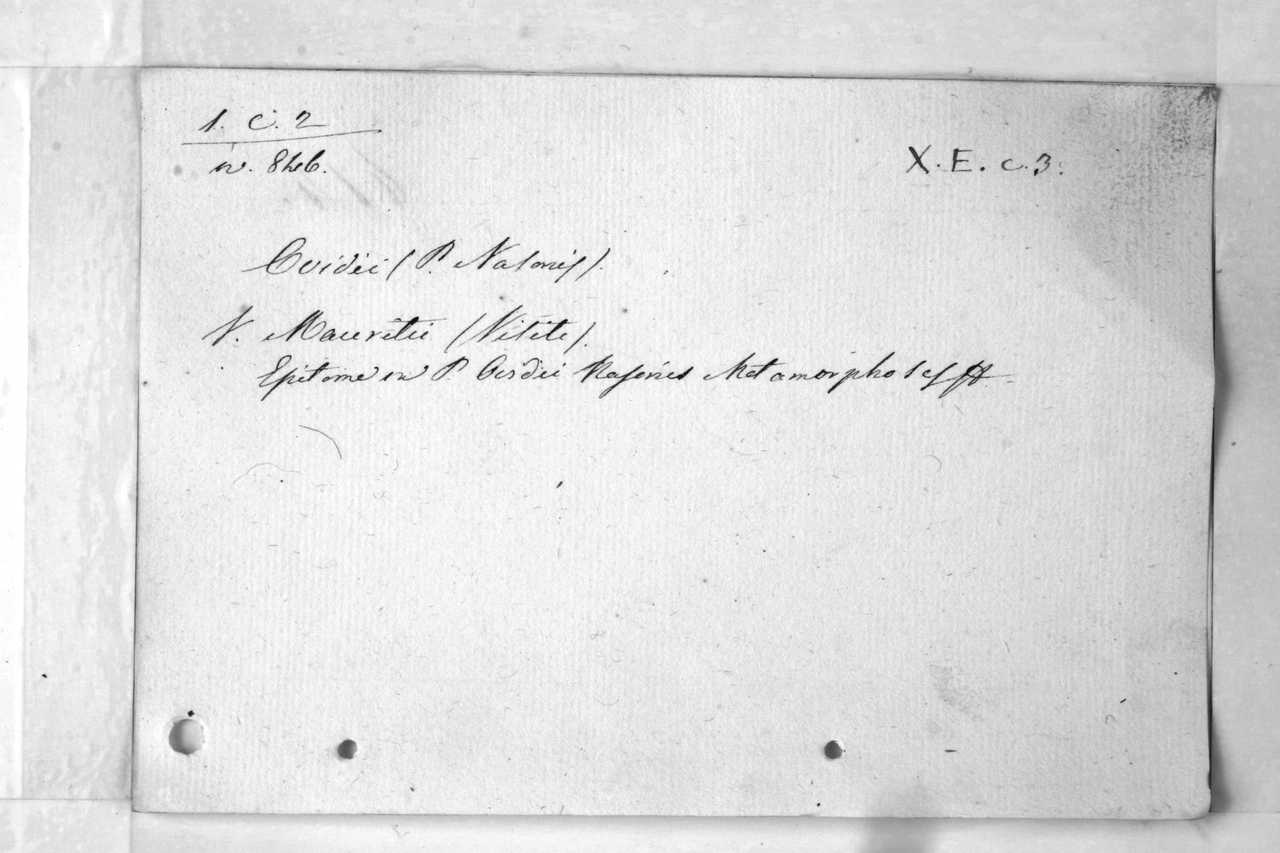 1. C. 2
n. 846.
X. E. c. 3.
Ovidii (P. Nasonis).
V. Mauritii (Vitite).
Epitome in P. Ovidii Nasonis Metamorphoses